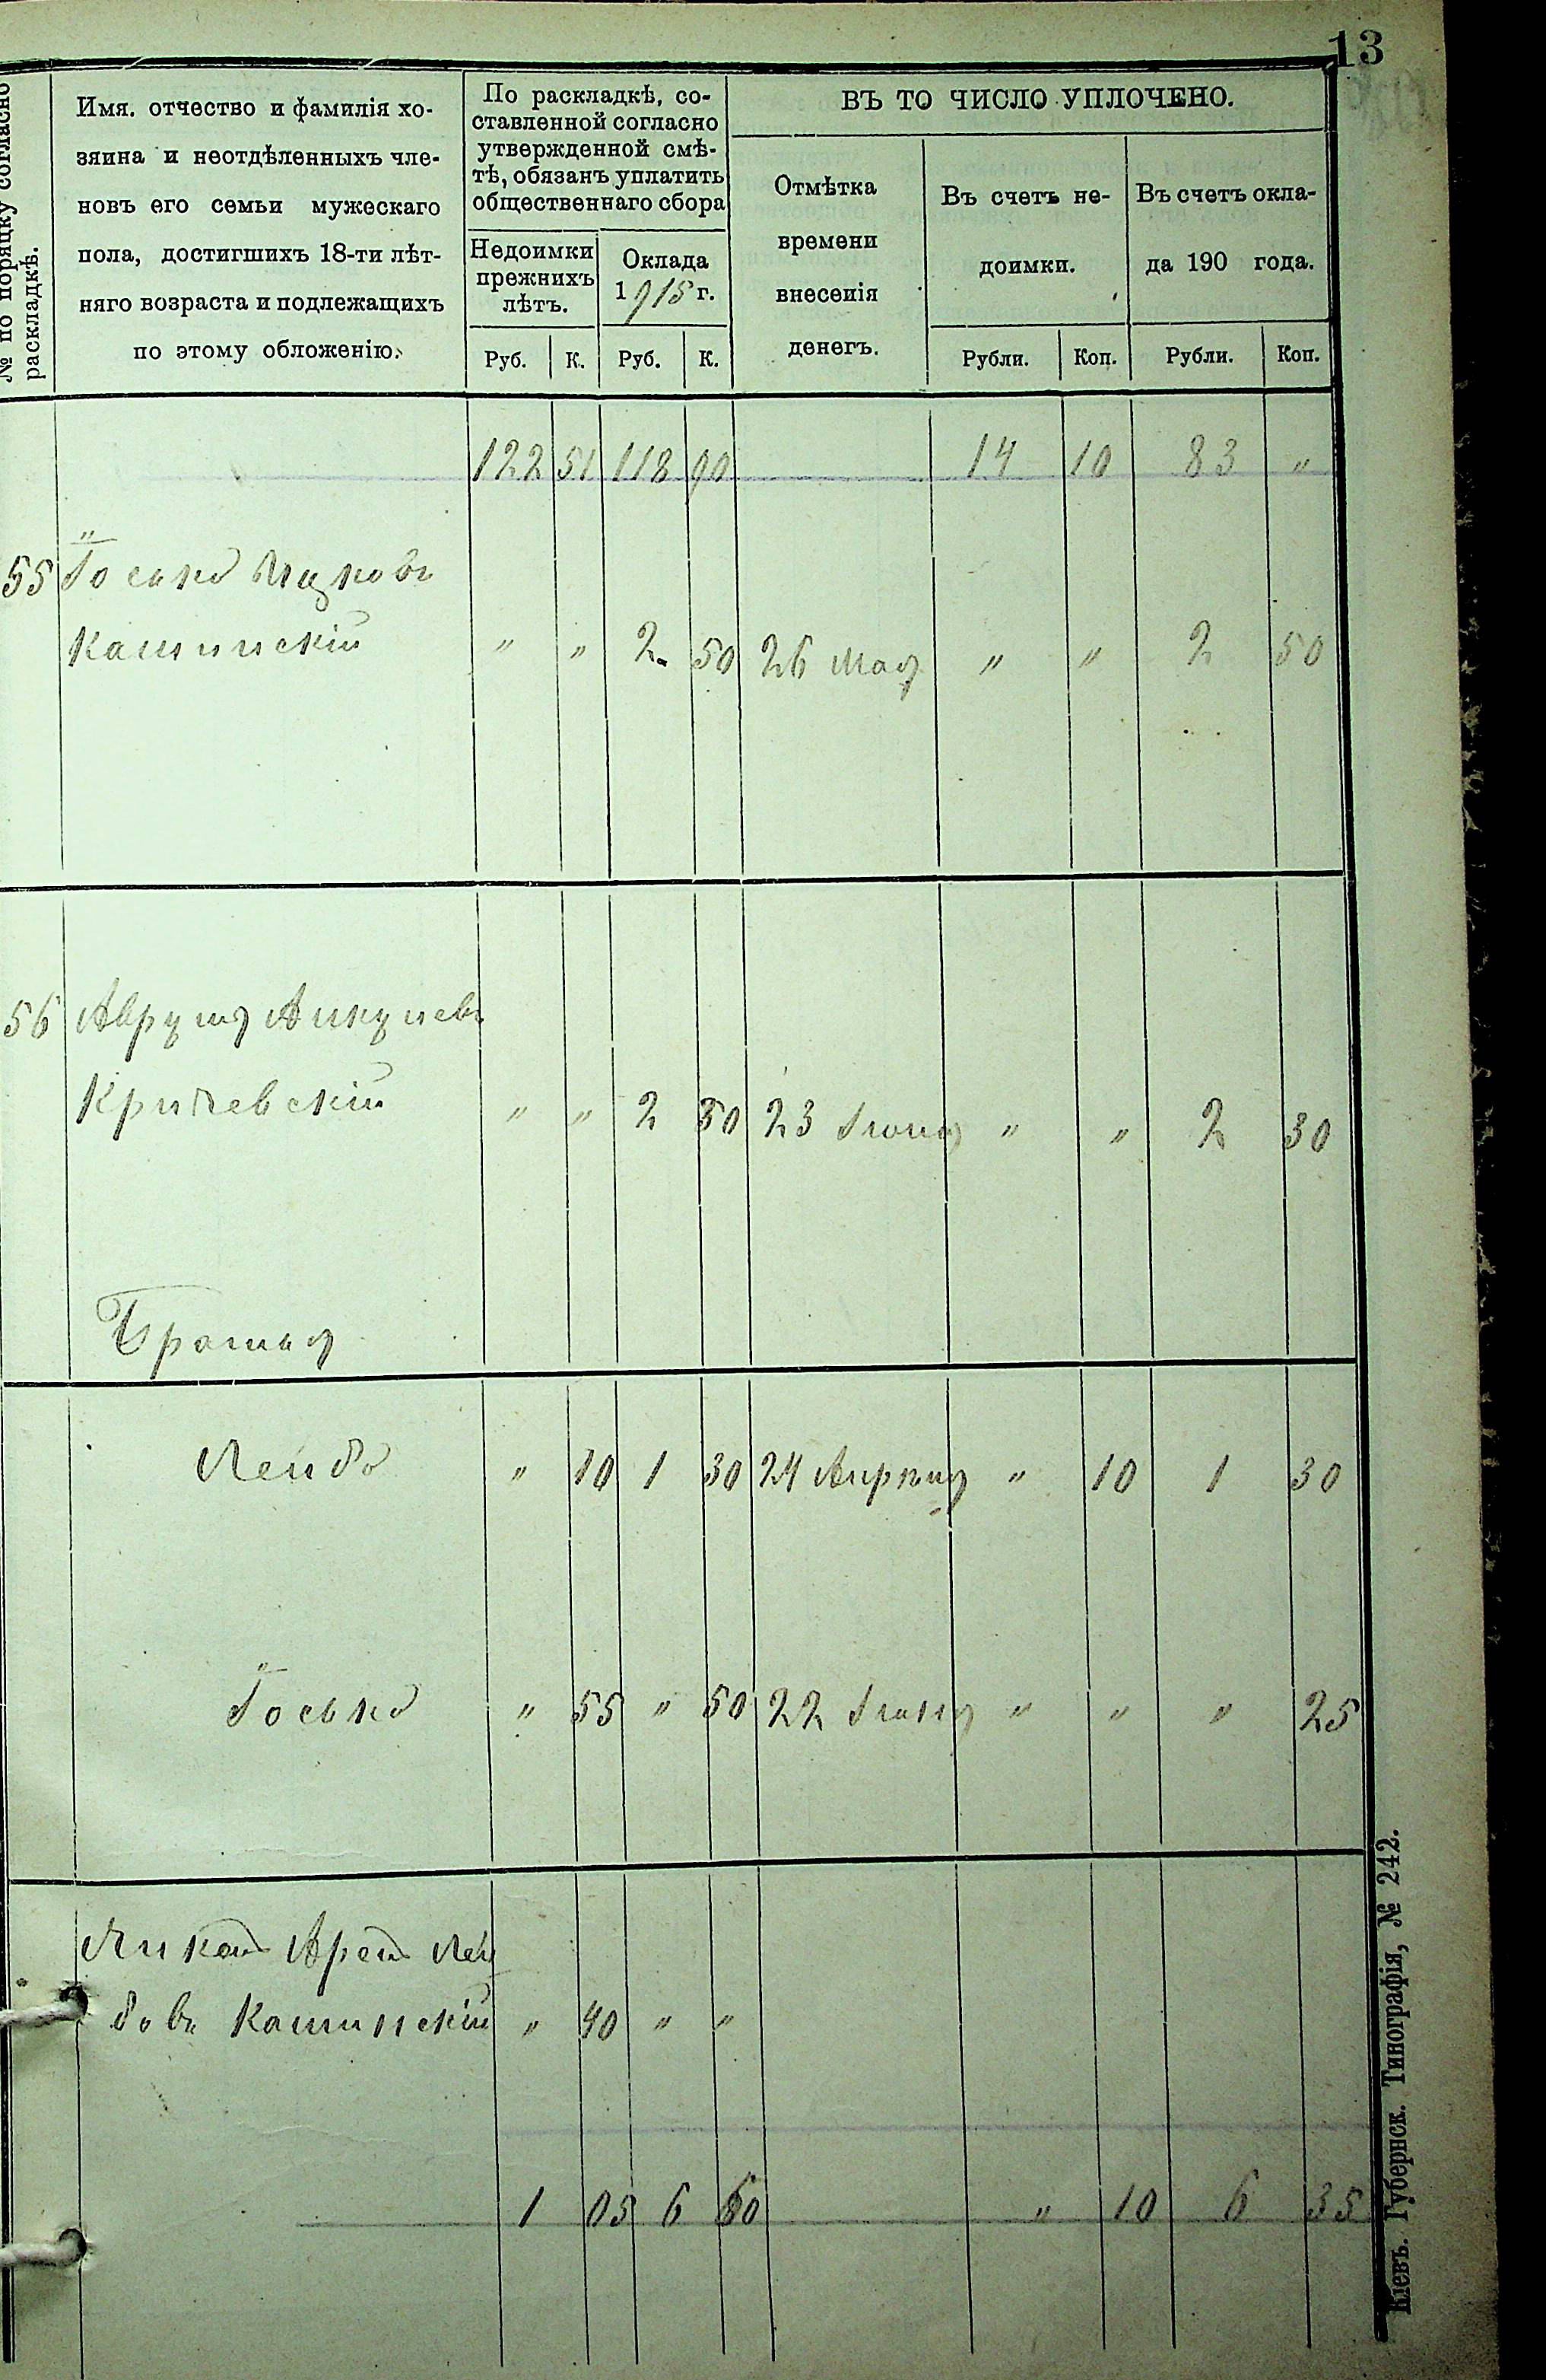 13
№ по порядку согласно
раскладкѣ.
Имя. отчество и фамилія хо-
зяина и неотдѣленныхъ чле-
новъ его семьи мужескаго
пола, достигшихъ 18-ти лѣт-
няго возраста и подлежащихъ
по этому обложенію.
По раскладкѣ, со-
ставленной согласно
утвержденной смѣ-
тѣ, обязанъ уплатить
общественнаго сбора
Недоимки
прежнихъ
лѣтъ.
Оклада
1915 г.
ВЪ ТО ЧИСЛО УПЛОЧЕНО.
Отмѣтка
времени
внесенія
денегъ.
Въ счетъ не-
доимки.
Въ счетъ окла-
да 190 года.
Руб. К. Руб. К. Рубли. Коп. Рубли. Коп.
122 51 118 90 14 10 83 "
55 Іосько Ицковъ
Кашинскій " " 2 50 26 Мая " " 2 50
56 Аврумъ
Кричевскій " " 2 30 23 Іюня " " 2 30
Братья
Лейба " 10 1 30 24 Апрѣля " 10 1 30
Іосько " 55 " 50 22 Іюня " " " 25
Аронъ Лей
бовъ Кашинскій " 40 " "
1 05 6 60 " 10 6 35
Кіевъ. Губернск. Типографія, № 242.